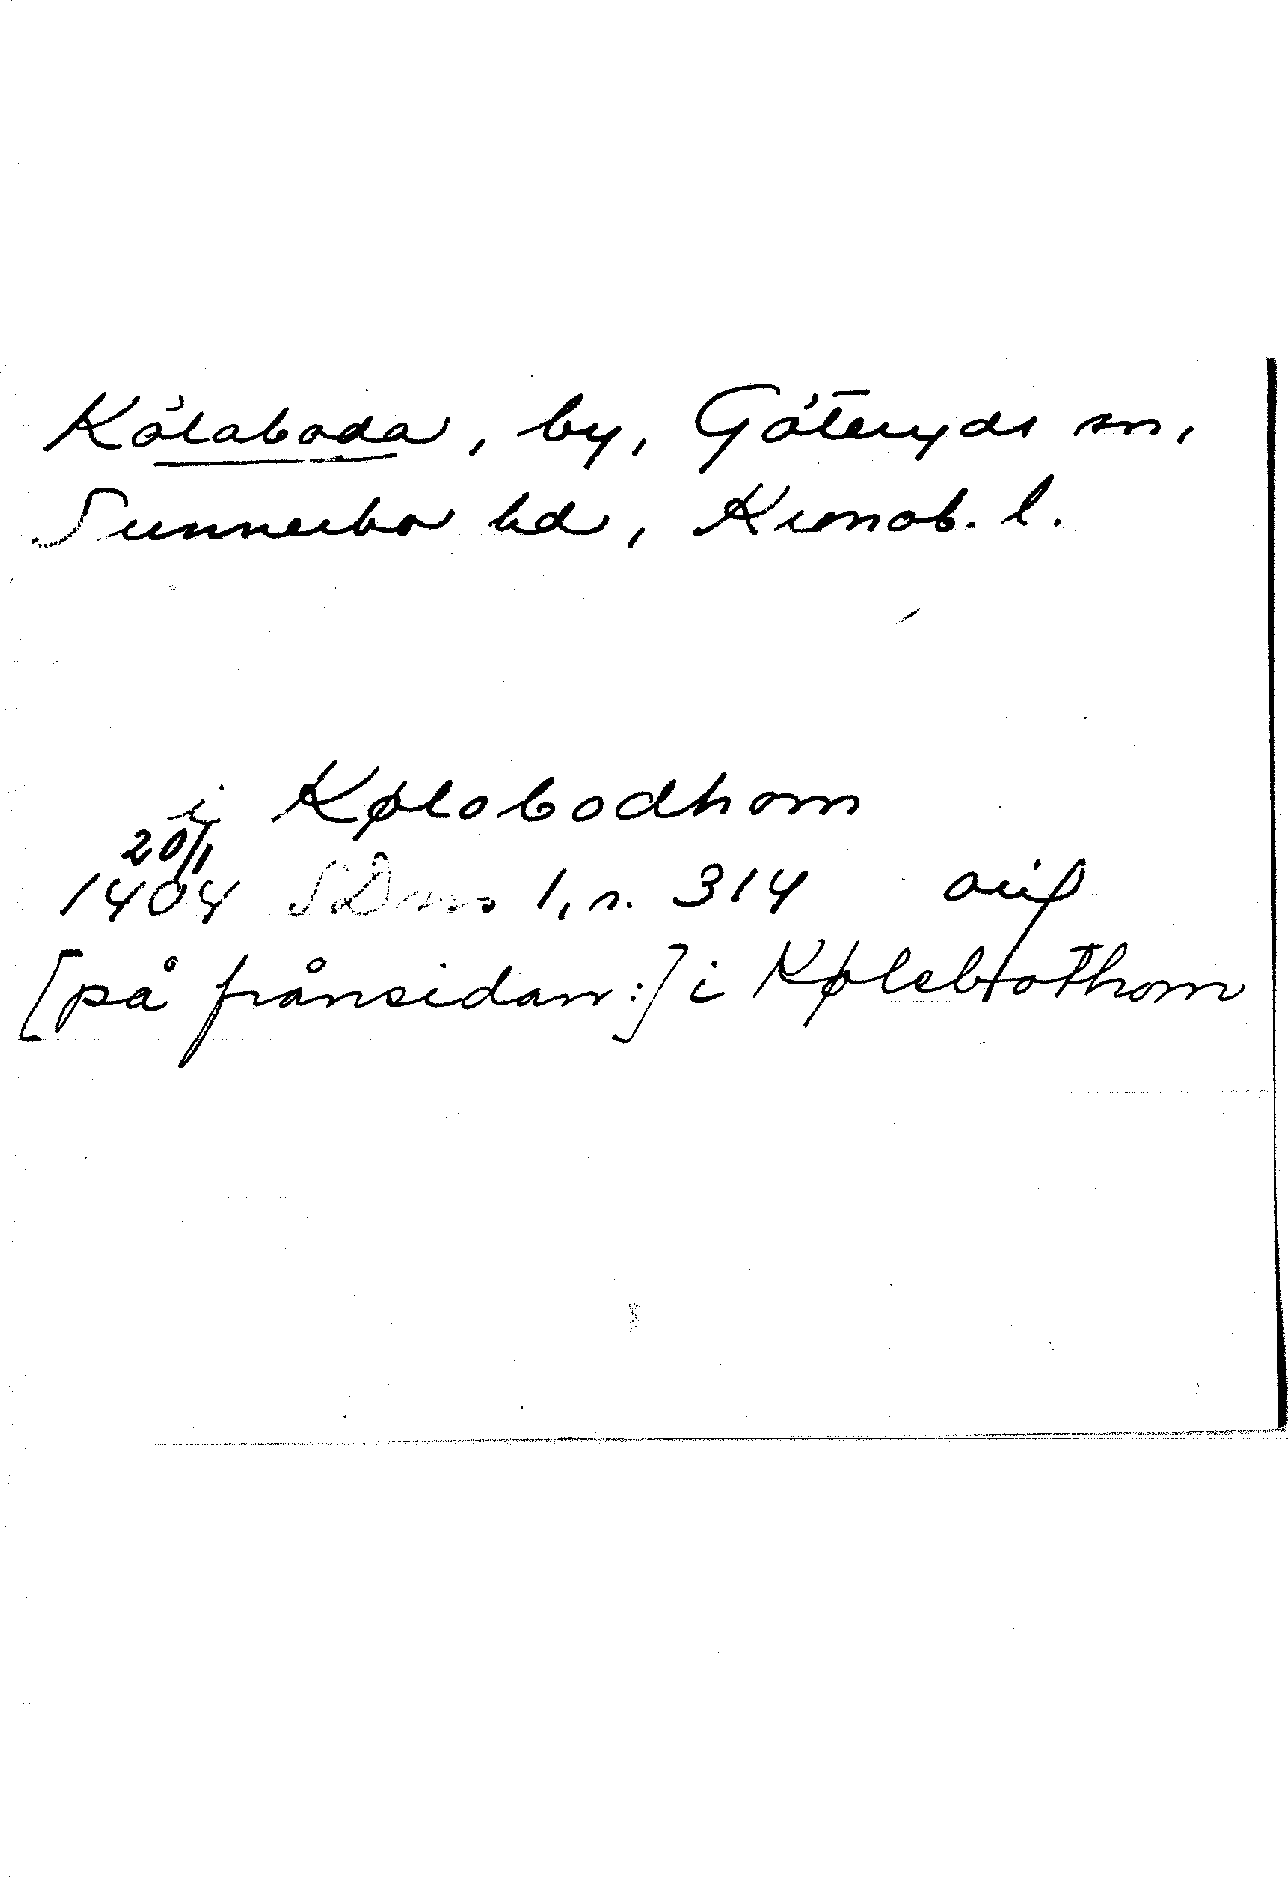 Kölaboda, by, Göteryds sn,
Sunnerbo hd, Kronob. l.
i Kølabodhom
20/1
1404 SDns 1, s. 314 orig
[på frånsidan:] i Kølebothom